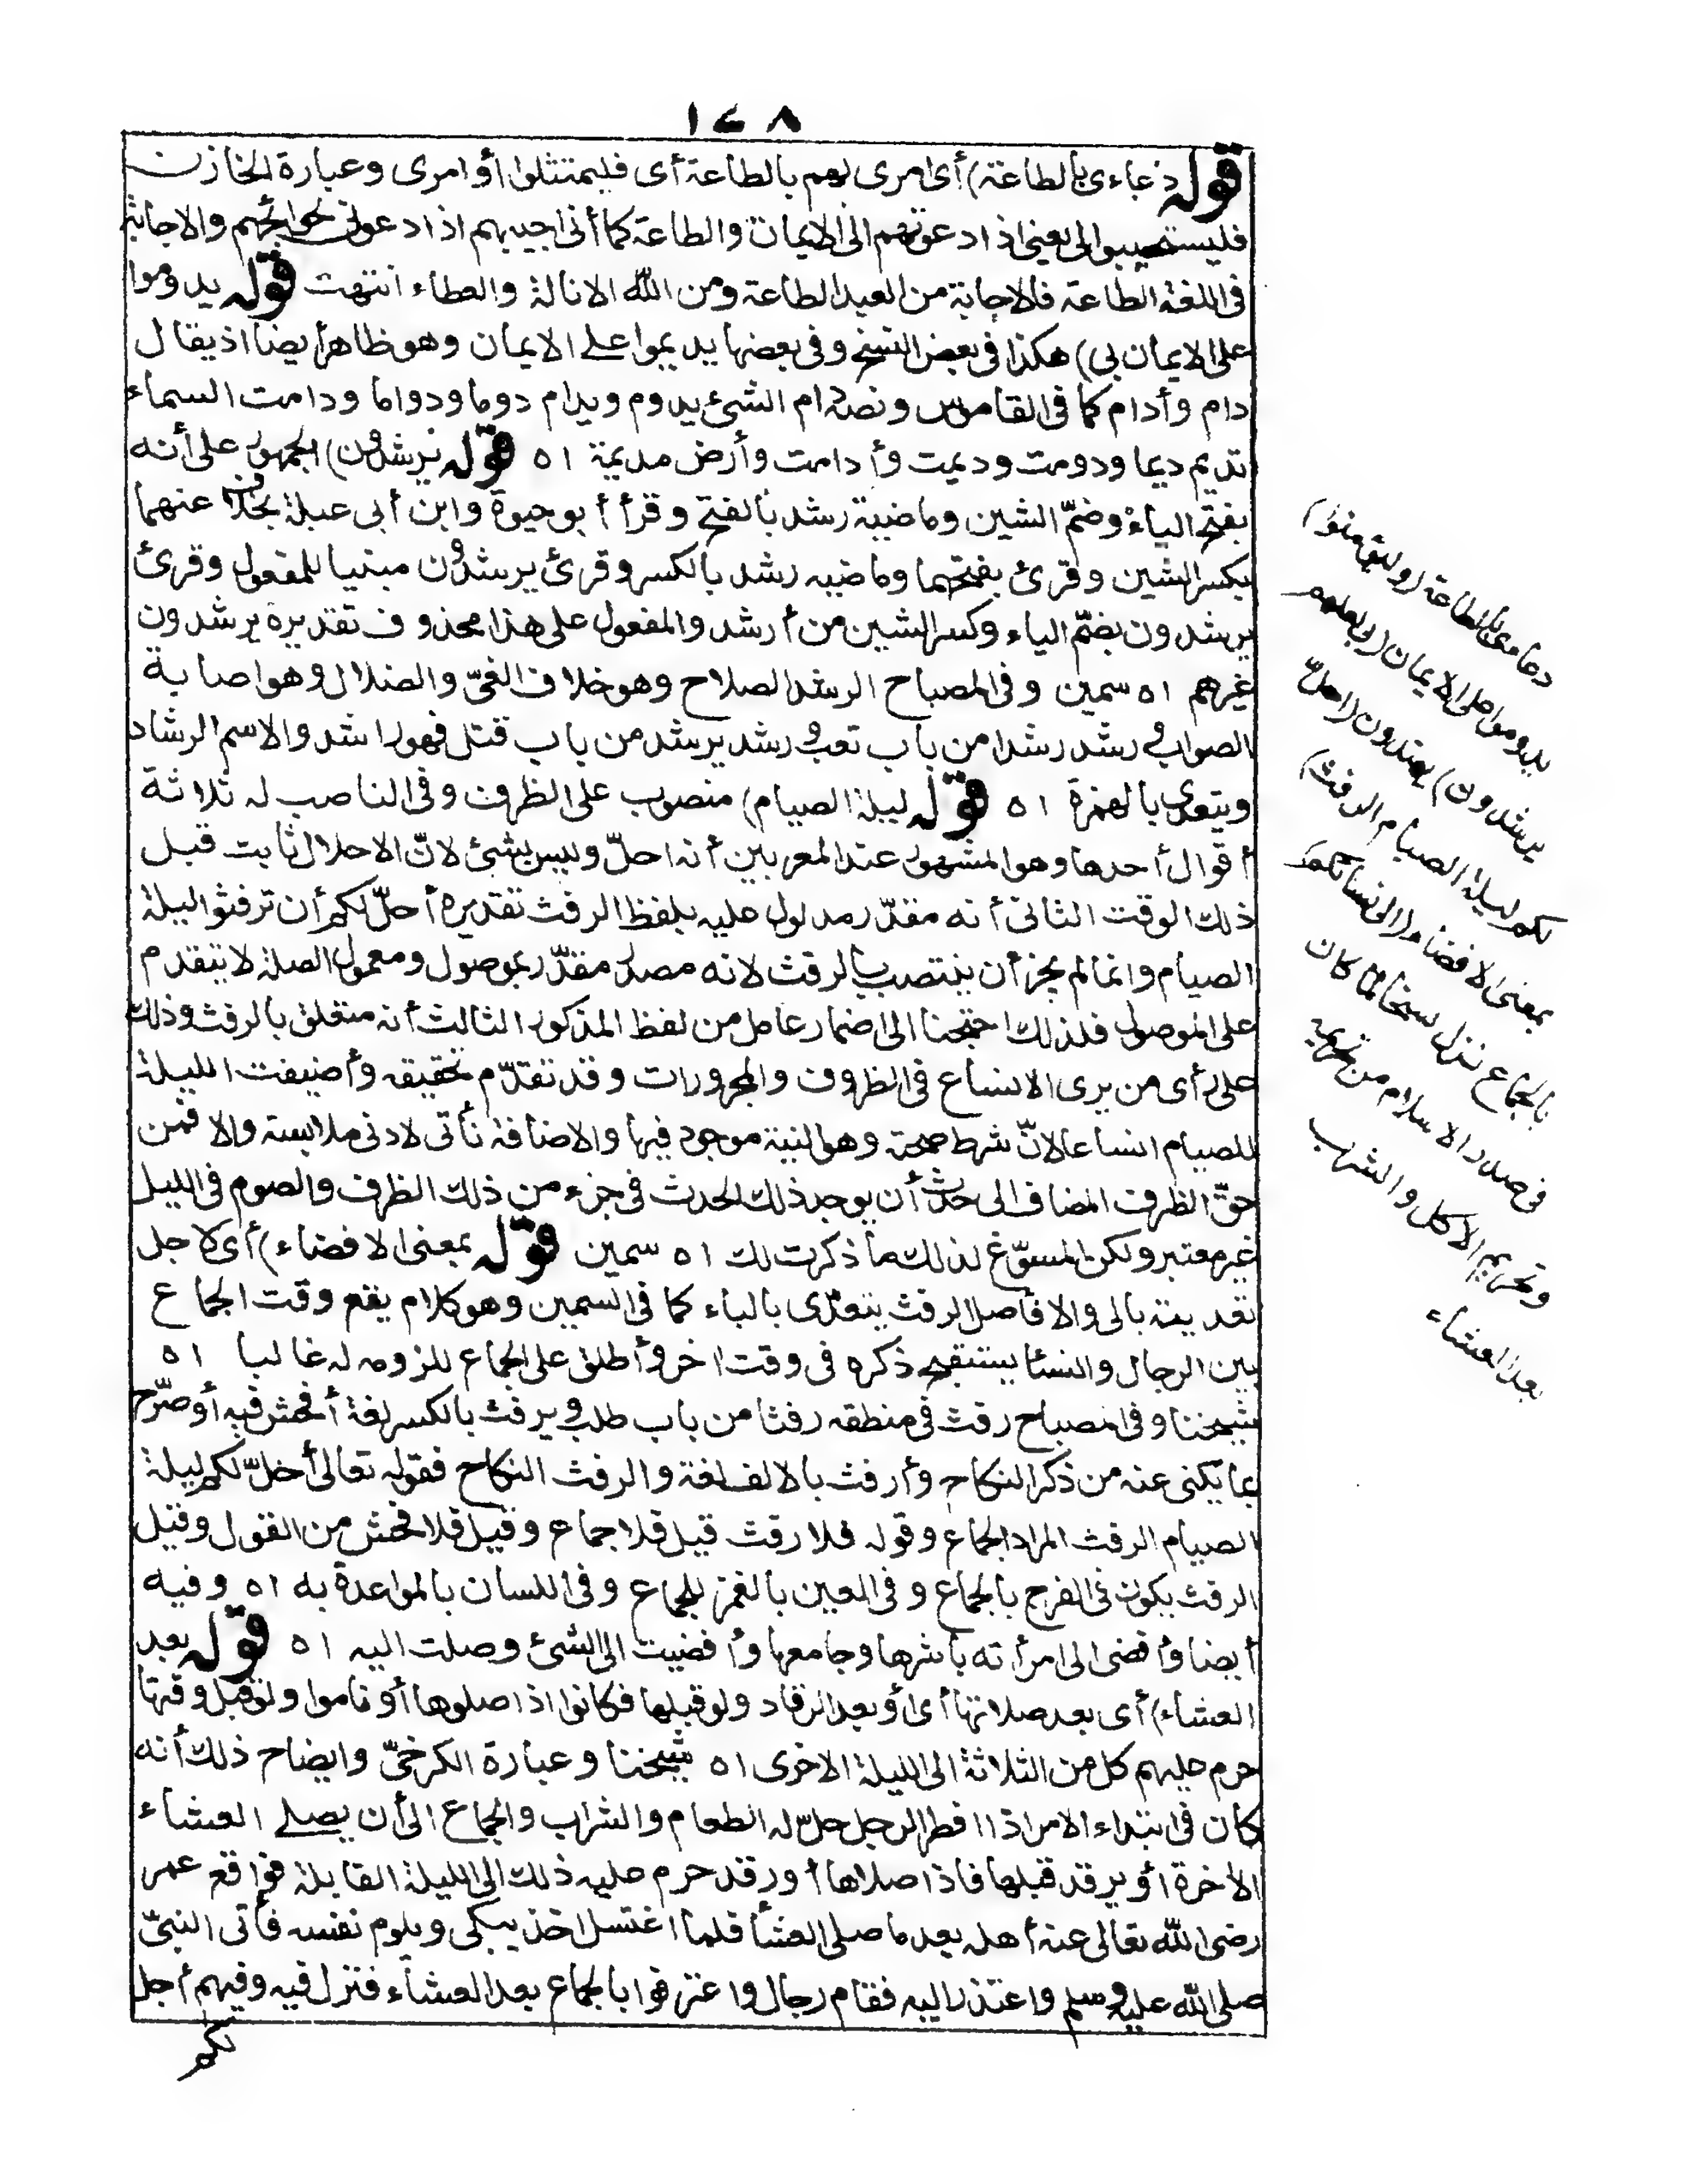 ١٤٨
قوله دعاءى بالطاعة) أى امرى لهم بالطاعة أى فليمتثلوا أوامرى وعبارة الخازن
فليستجيبوا لى يعنى اذا دعوتهم الى الايمان والطاعة كما أنى اجيبهم اذا دعونى لحوائجهم والاجابة
فى اللغة الطاعة فالاجابة من العبد الطاعة ومن الله الانالة والعطاء انتهت قوله يدوموا
على الايمان بى) هكذا فى بعض النسخ وفى بعضها يديموا على الايمان وهو ظاهر أيضا اذ يقال
دام وأدام كما فى القاموس ونصه دام الشئ يدوم ويدام دوما ودواما ودامت السماء
تديم ديما ودومت وديمت وأدامت وأرض مديمة اه قوله يرشدون) الجمهور على أنه
بفتح الياء وضمّ الشين وماضيه رشد بالفتح وقرأ أبو حيوة وابن أبى عبلة بخلاف عنهما
بكسر الشين وقرئ بفتحهما وماضيه رشد بالكسر وقرئ يرشدون مبنيا للمفعول وقرئ
يرشدون بضمّ الياء وكسر الشين من أرشد والمفعول على هذا محذوف تقديره يرشدون
غيرهم اه سمين وفى المصباح الرشد الصلاح وهو خلاف الغىّ والضلال وهو اصابة
الصواب ورشد رشدا من باب تعب ورشد يرشد من باب قتل فهو راشد والاسم الرشاد
ويتعدى بالهمزة اه قوله ليلة الصيام) منصوب على الظرف وفى الناصب له ثلاثة
أقوال أحدها وهو المشهور عند المعربين أنه احلّ وليس بشئ لانّ الاحلال ثابت قبل
ذلك الوقت الثانى أنه مقدّر مدلول عليه بلفظ الرفث تقديره أحلّ لكم أن ترفثوا ليلة
الصيام وانما لم يجز أن ينتصب بالرفث لانه مصدر مقدّر بموصول ومعمول الصلة لا يتقدم
على الموصول فلذلك احتجنا الى اضمار عامل من لفظ المذكور الثالث أنه متعلق بالرفث وذلك
على رأى من يرى الاتساع فى الظروف والمجرورات وقد تقدّم تحقيقه وأضيفت الليلة
للصيام اتساعا لانّ شرط صحته وهو النية موجود فيها والاضافة تأتى لادنى ملابسة والا فمن
حقّ الظرف المضاف الى حدث أن يوجد ذلك الحدث فى جزء من ذلك الظرف والصوم فى الليل
غير معتبر ولكن المسوّغ لذلك ما ذكرت لك اه سمين قوله بمعنى الافضاء) أى لاجل
تعديته بالى والا فأصل الرفث يتعدّى بالباء كما فى السمين وهو كلام يقع وقت الجماع
بين الرجال والنسا يستقبح ذكره فى وقت اخر وأطلق على الجماع للزومه له غالبا اه
شيخنا وفى المصباح رفث فى منطقه رفثا من باب طلب ويرفث بالكسر لغة أفحش فيه أو صرّح
بما يكنى عنه من ذكر النكاح وأرفث بالالف لغة والرفث النكاح فقوله تعالى أحلّ لكم ليلة
الصيام الرفث المراد الجماع وقوله فلا رفث قيل فلا جماع وقيل فلا فحش من القول وقيل
الرفث يكون فى الفرج بالجماع وفى العين بالغمز للجماع وفى اللسان بالمواعدة به اه وفيه
أيضا وأفضى الى امرأته باشرها وجامعها وأفضيت الى الشئ وصلت اليه اه قوله بعد
العشاء) أى بعد صلاتها أى أو بعد الرقاد ولو قبلها فكانوا اذا صلوها أو ناموا ولو قبل وقتها
حرم عليهم كل من الثلاثة الى الليلة الاخرى اه شيخنا وعبارة الكرخىّ وايضاح ذلك أنه
كان فى ابتداء الامر اذا افطر الرجل حلّ له الطعام والشراب والجماع الى أن يصلى العشاء
الاخرة أو يرقد قبلها فاذا صلاها أو رقد حرم عليه ذلك الى الليلة القابلة فواقع عمر
رضى الله تعالى عنه أهله بعد ما صلى العشأ فلما اغتسل اخذ يبكى ويلوم نفسه فأتى النبىّ
صلى الله عليه وسلم واعتذر اليه فقام رجال واعترفوا بالجماع بعد العشاء فنزل فيه وفيهم أحل
لكم
دعاءى بالطاعة (وليؤمنوا)
يدوموا على الايمان (بى لعلهم
يرشدون) يهتدون (احلّ
لكم ليلة الصيام الرفث)
بمعنى الافضاء (الى نسائكم)
بالجماع نزل نسخا لما كان
فى صدر الاسلام من تحريمه
وتحريم الاكل والشرب
بعد العشاء